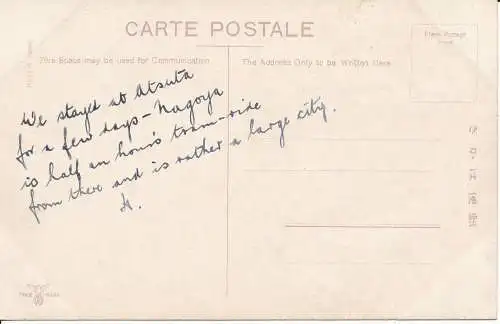 CARTE POSTALE
This Space may be used for Communication
The Address Only to be Written Here
Place Postage
We stayed at Atsuta
for a few days - Nagoya
is half an hour's tram-ride
from there and is rather a large city.
H.
TRADE MARK